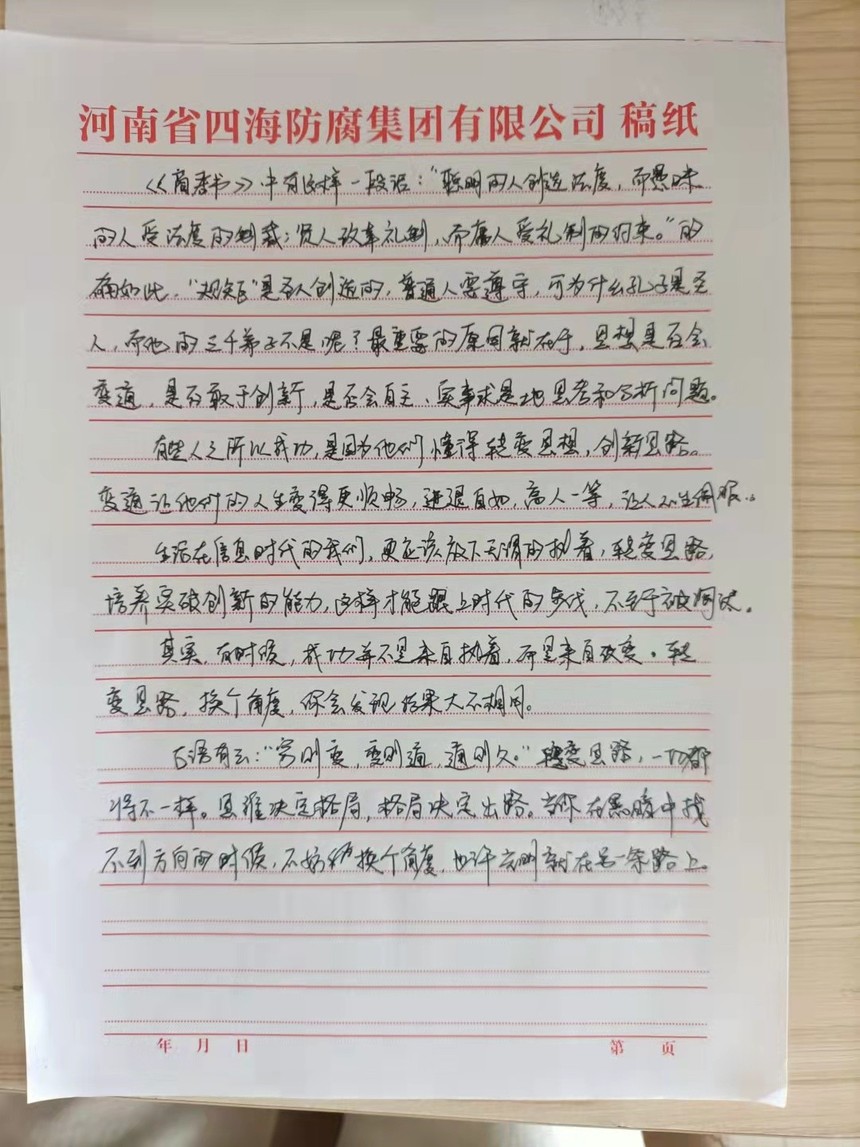 河南省四海防腐集团有限公司 稿纸
《《商君书》》中有这样一段话：“聪明的人创造法度，而愚昧
的人受法度的制裁；贤人改革礼制，而庸人受礼制的约束。”的
确如此，“规矩”是圣人创造的，普通人需遵守，可为什么孔子是圣
人，而他的三千弟子不是呢？最重要的原因就在于，思想是否会
变通，是否敢于创新，是否会自主、实事求是地思考和分析问题。
有些人之所以成功，是因为他们懂得转变思想，创新思路。
变通让他们的人生变得更顺畅，进退自如，高人一等，让人心生佩服。
生活在信息时代的我们，更应该放下无谓的执着，转变思路，
培养突破创新的能力，这样才能跟上时代的步伐，不至于被淘汰。
其实，有时候，成功并不是来自执着，而是来自改变。转
变思路，换个角度，你会发现结果大不相同。
古语有云：“穷则变，变则通，通则久。”转变思路，一切都
将不一样。思维决定格局，格局决定出路。当你在黑暗中找
不到方向的时候，不妨换个角度，也许光明就在另一条路上。
年 月 日
第 页